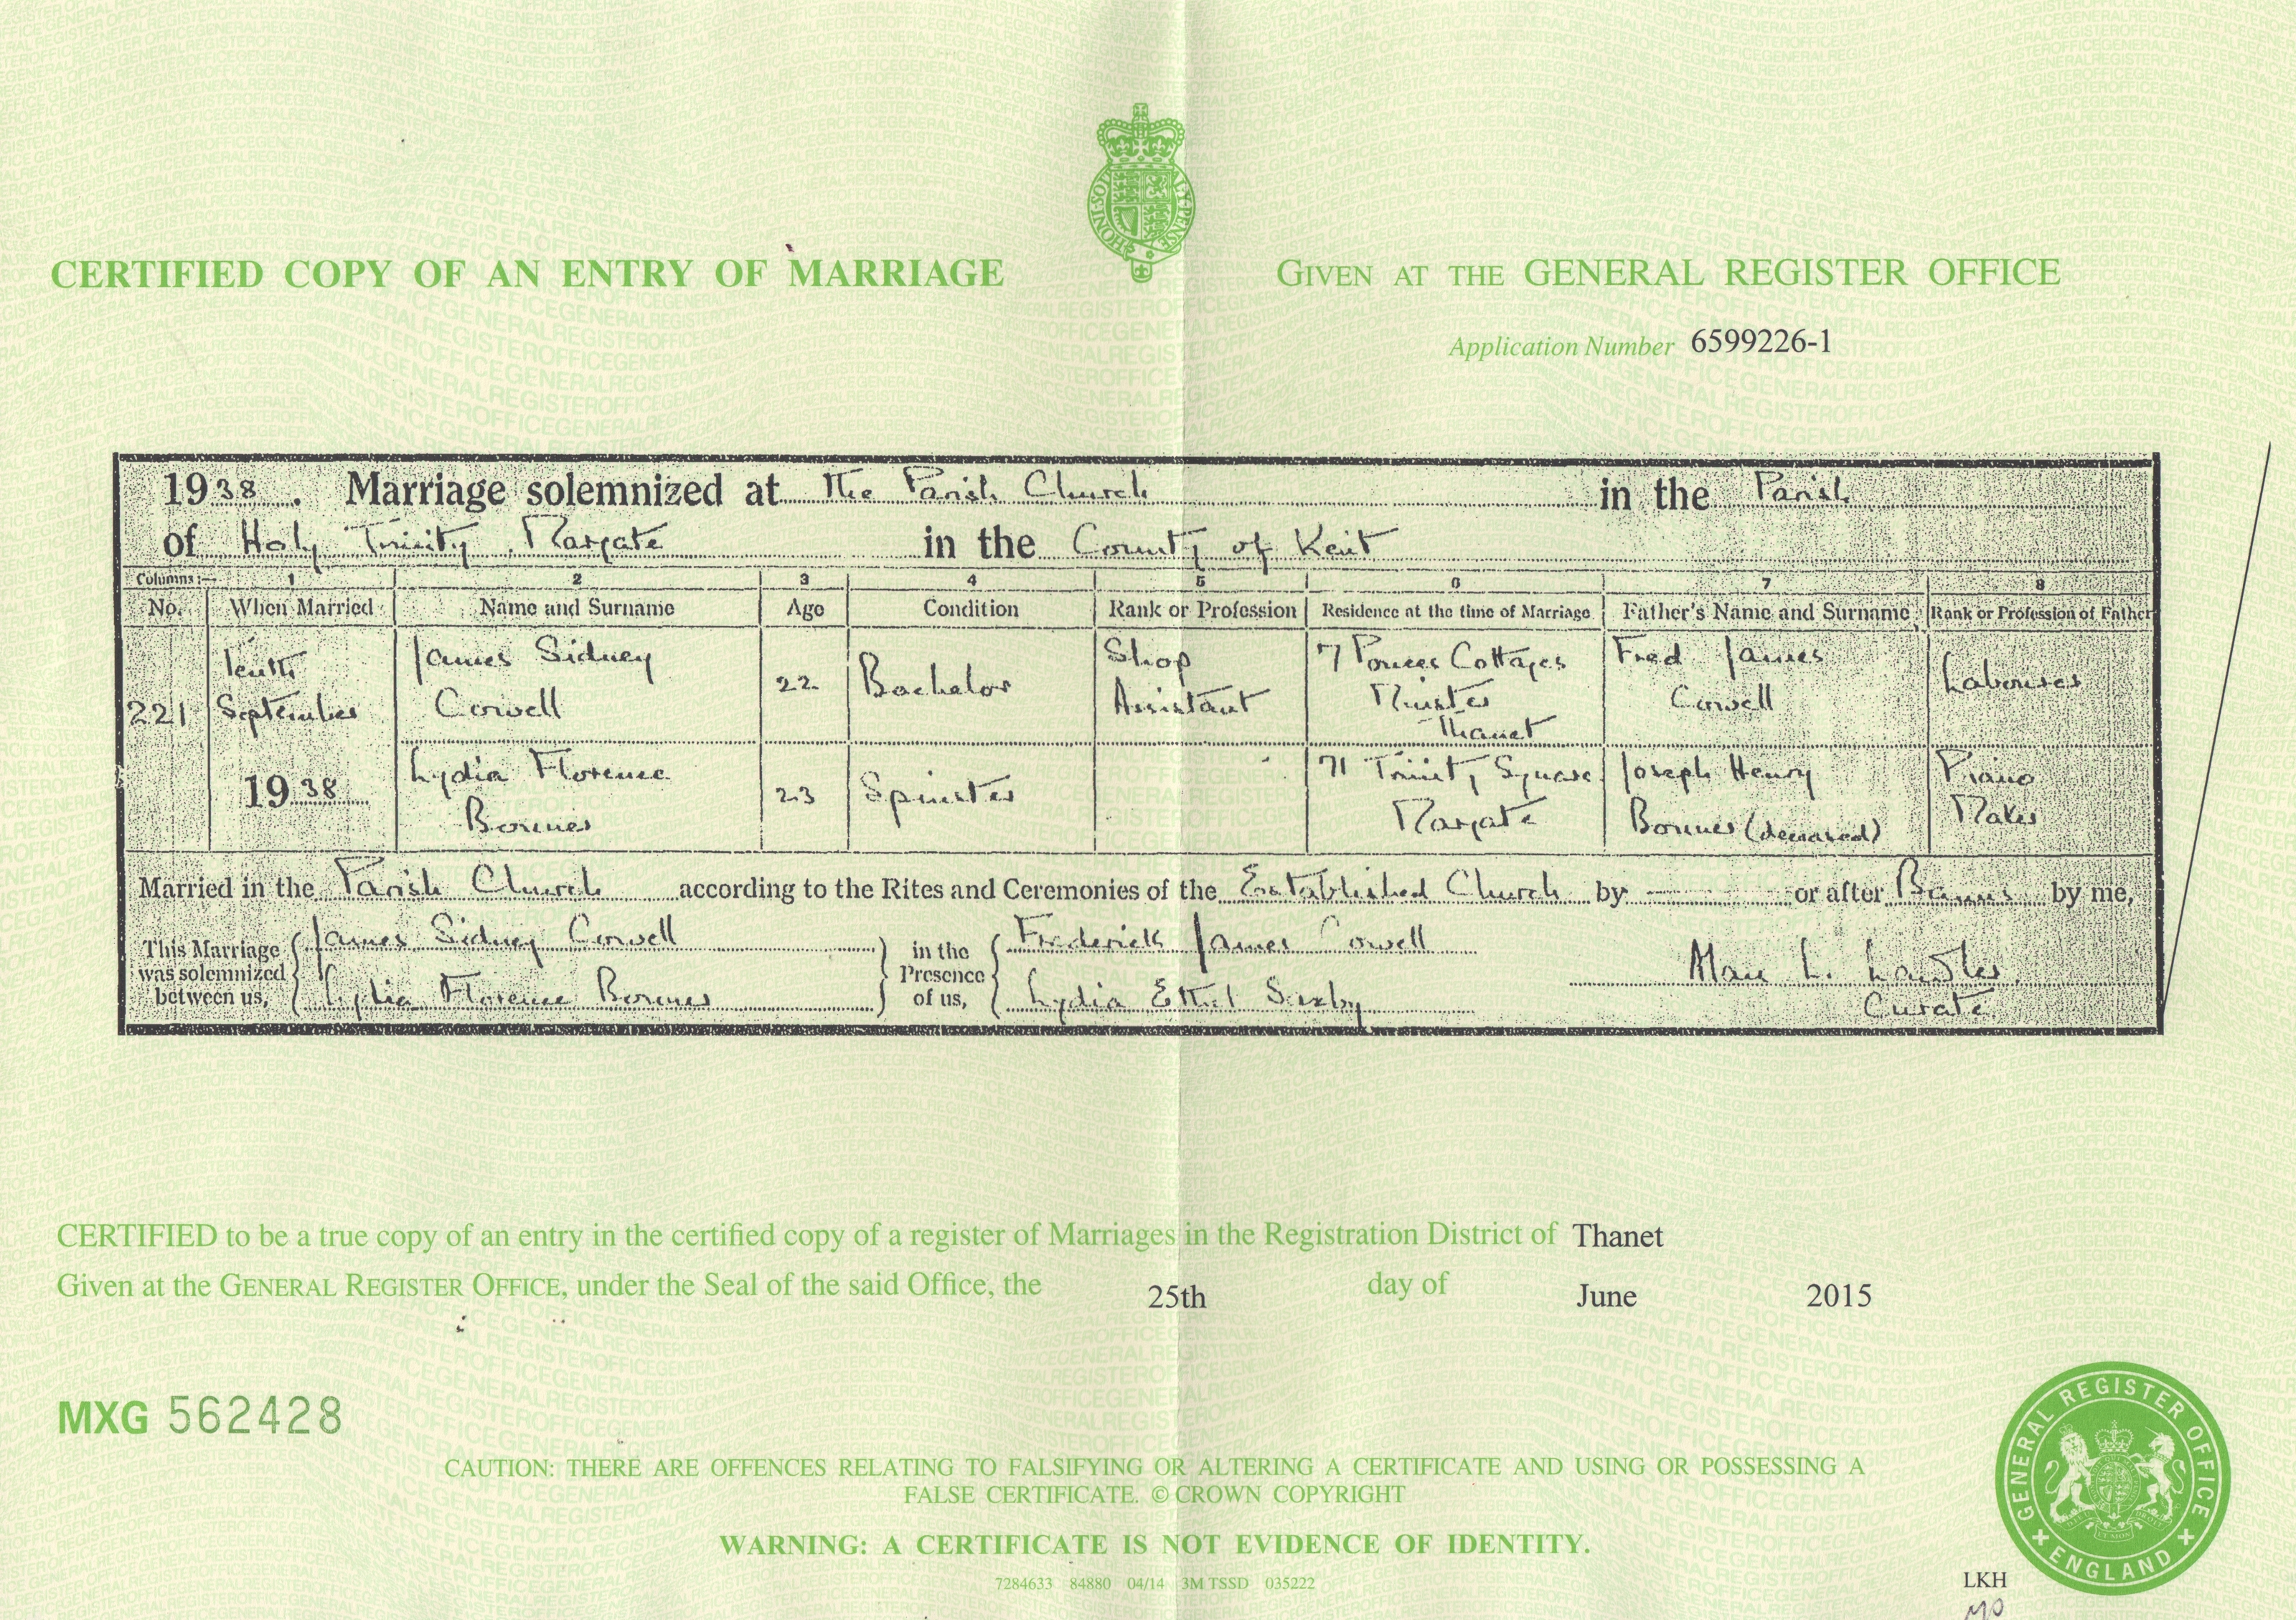 CERTIFIED COPY OF AN ENTRY OF MARRIAGE
GIVEN AT THE GENERAL REGISTER OFFICE
Application Number 6599226-1
1938. Marriage solemnized at The Parish Church in the Parish
of Holy Trinity, Margate in the County of Kent
Columns:— 1 2 3 4 5 6 7 8
No. When Married Name and Surname Age Condition Rank or Profession Residence at the time of Marriage Father's Name and Surname Rank or Profession of Father
221 Tenth September 1938
James Sidney Cowell 22 Bachelor Shop Assistant 7 Cottages Minster Thanet Fred James Cowell Labourer
Lydia Florence Bonner 23 Spinster 71 Trinity Square Margate Joseph Henry Bonner (deceased) Piano Maker
Married in the Parish Church according to the Rites and Ceremonies of the Established Church by — or after Banns by me,
This Marriage was solemnized between us, James Sidney Cowell
Lydia Florence Bonner
in the Presence of us, Frederick James Cowell
Lydia Ethel Saxby
L.
Curate
CERTIFIED to be a true copy of an entry in the certified copy of a register of Marriages in the Registration District of Thanet
Given at the GENERAL REGISTER OFFICE, under the Seal of the said Office, the 25th day of June 2015
MXG 562428
CAUTION: THERE ARE OFFENCES RELATING TO FALSIFYING OR ALTERING A CERTIFICATE AND USING OR POSSESSING A
FALSE CERTIFICATE. © CROWN COPYRIGHT
WARNING: A CERTIFICATE IS NOT EVIDENCE OF IDENTITY.
7284633 84880 04/14 3M TSSD 035222
GENERAL REGISTER OFFICE
ENGLAND
LKH